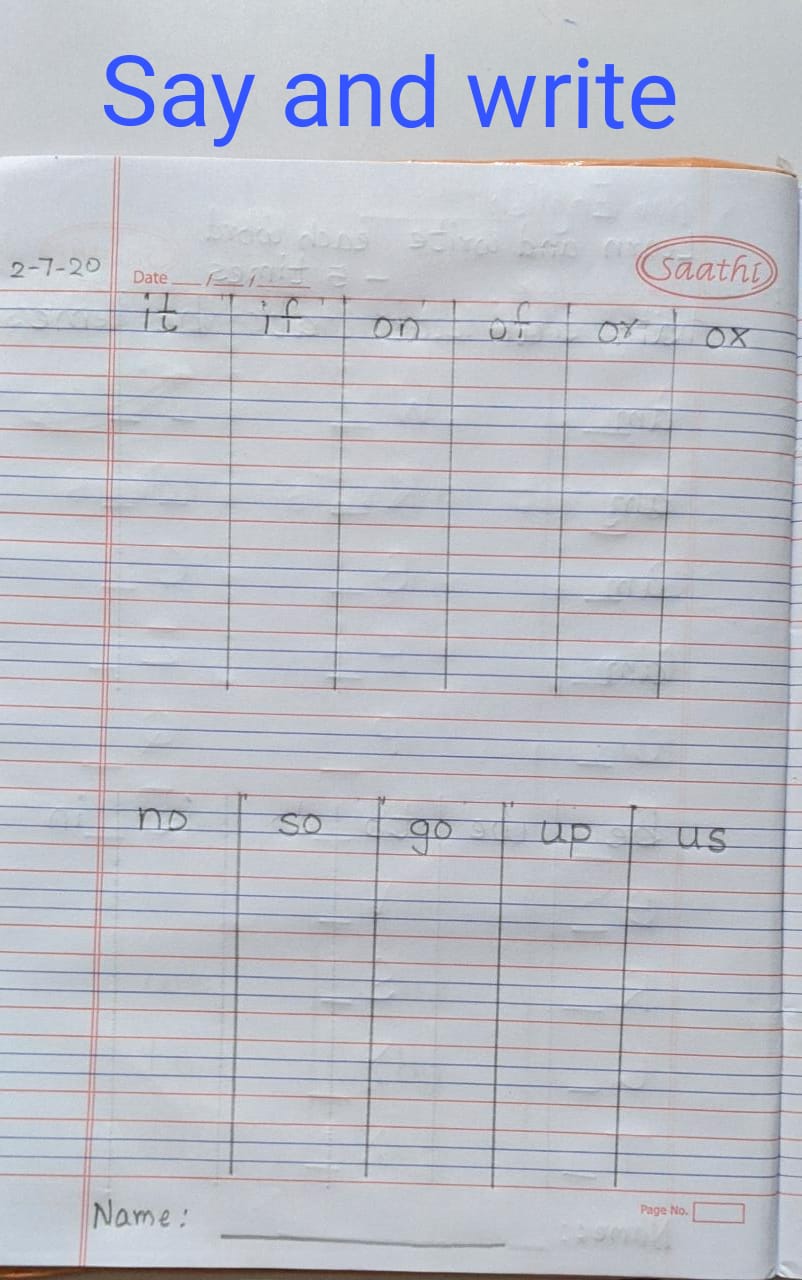 Say and write
2-7-20
Date
Saathi
it if on of or ox
no so go up us
Name:
Page No.